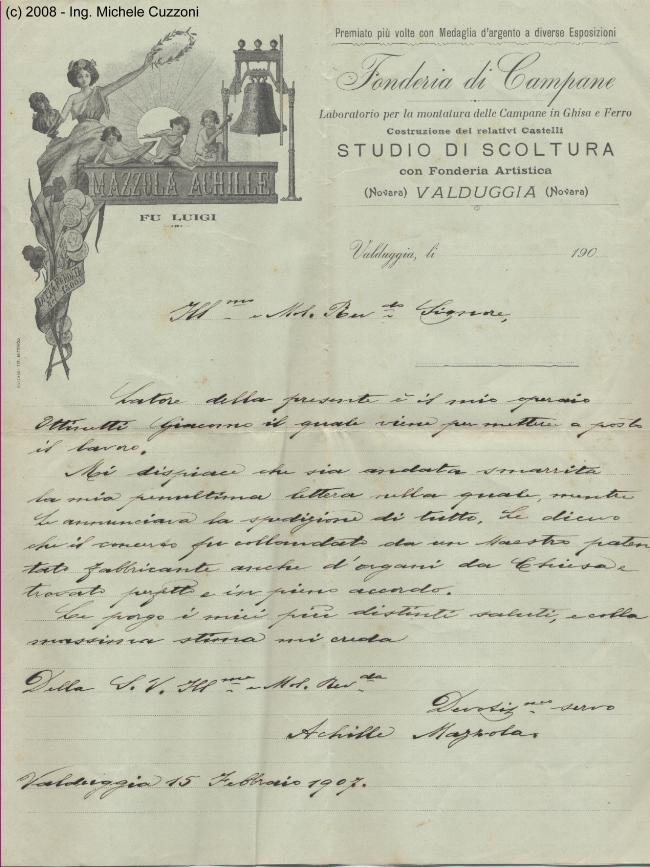 (c) 2008 - Ing. Michele Cuzzoni
Premiato più volte con Medaglia d'argento a diverse Esposizioni
Fonderia di Campane
Laboratorio per la montatura delle Campane in Ghisa e Ferro
Costruzione dei relativi Castelli
STUDIO DI SCOLTURA
con Fonderia Artistica
(Novara) VALDUGGIA (Novara)
MAZZOLA ACHILLE
FU LUIGI
Valduggia, li 190
Ill.mo e Mol. Rev.do Signore,
Latore della presente è il mio operaio
Ottinetti Giacomo il quale viene per mettere a posto
il lavoro.
Mi dispiace che sia andata smarrita
la mia penultima lettera nella quale, mentre
Le annunciava la spedizione di tutto, Le dicevo
che il concerto fu collaudato da un Maestro paten
tato fabbricante anche d'organi da Chiesa e
trovato perfetto e in pieno accordo.
Le porgo i miei più distinti saluti, e colla
massima stima mi creda
Della S. V. Ill.ma e Mol. Rev.da
Devotis.mo servo
Achille Mazzola.
Valduggia 15 Febbraio 1907.